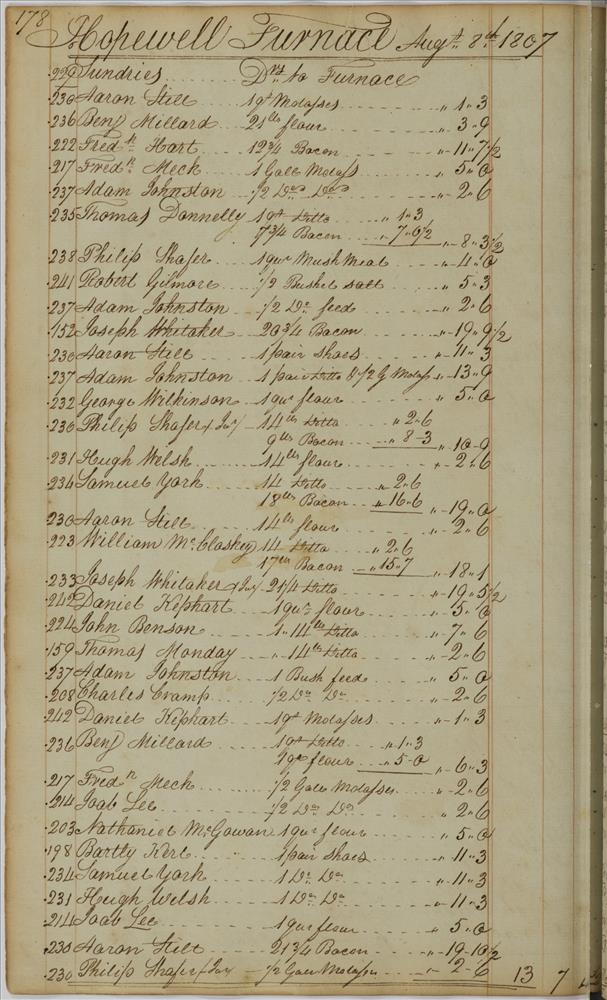 178 Hopewell Furnace Augt. 8th 1807
229 Sundries Drs. to Furnace
230 Aaron Stell 1 qt Molasses „ 1 „ 3
236 Benj Millard 21 lbs flour „ 3 „ 9
222 Fredk. Hart 12 3/4 Bacon „ 11 „ 7 1/2
217 Fredk. Meck 1 Galln Molass „ 5 „ 0
237 Adam Johnston 1/2 Do. Do. „ 2 „ 6
235 Thomas Donnelly 1 qt Ditto „ 1 „ 3
7 3/4 Bacon „ 7 „ 0 1/2 „ 8 „ 3 1/2
238 Philip Shafer 1 qur Mush Meal „ 4 „ 0
241 Robert Gilmore 1/2 Bushel salt „ 5 „ 3
237 Adam Johnston 1/2 Do. feed „ 2 „ 6
152 Joseph Whitaker 20 3/4 Bacon „ 19 „ 9 1/2
230 Aaron Stell 1 pair Shoes „ 11 „ 3
237 Adam Johnston 1 pair Ditto & 1/2 G Molass „ 13 „ 9
232 George Wilkinson 1 qur flour „ 5 „ 0
230 Philip Shafer Jur 14 lbs Ditto „ 2 „ 6
9 lbs Bacon „ 8 – 3 „ 10 – 9
231 Hugh Welsh 14 lbs flour „ 2 „ 6
234 Samuel York 14 Ditto „ 2 „ 6
18 lbs Bacon „ 16 „ 6 „ 19 „ 0
230 Aaron Stell 14 lb flour „ 2 „ 6
223 William McClaskey 14 Ditto „ 2 „ 6
17 lbs Bacon „ 15 „ 7 „ 18 „ 1
233 Joseph Whitaker Jur 21 1/4 Ditto „ 19 „ 5 1/2
242 Daniel Kephart 1 qur flour „ 5 „ 0
224 John Benson 1 „ 14 lbs Ditto „ 7 „ 6
159 Thomas Monday „ 14 lbs Ditto „ 2 „ 6
237 Adam Johnston 1 Bush feed „ 5 „ 0
208 Charles Cramp 1/2 Do. Do. „ 2 „ 6
242 Daniel Kephart 1 qt Molasses „ 1 „ 3
236 Benj Millard 1 qt Ditto „ 1 „ 3
1 qr flour „ 5 – 0 „ 6 „ 3
217 Fredk. Meck 1/2 Galln Molasses „ 2 „ 6
214 Joab Lee 1/2 Do. Do. „ 2 „ 6
203 Nathaniel McGowan 1 qur flour „ 5 „ 0
198 Bartly Kerl 1 pair Shoes „ 11 „ 3
234 Samuel York 1 Do. Do. „ 11 „ 3
231 Hugh Welsh 1 Do. Do. „ 11 „ 3
214 Joab Lee 1 qur flour „ 5 „ 0
230 Aaron Stell 21 3/4 Bacon „ 19 – 10 1/2
230 Philip Shafer Jur 1/2 Galln Molasses „ 2 – 6 13 7